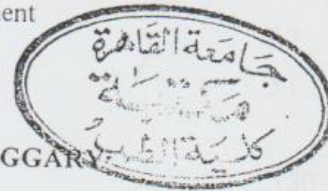 ent
جامعة القاهرة
كلية الطب
GGARY